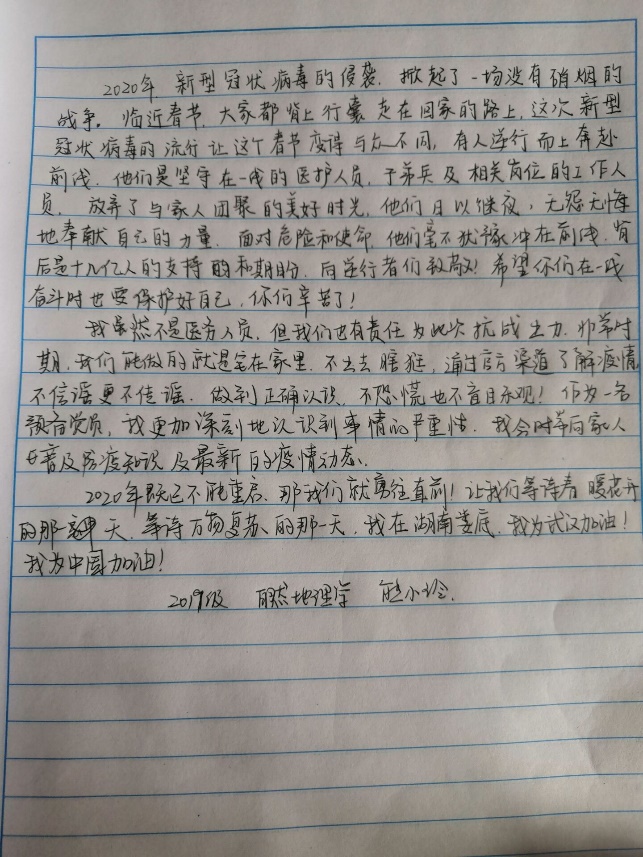 2020年 新型冠状病毒的侵袭，掀起了一场没有硝烟的
战争。临近春节，大家都背上行囊走在回家的路上，这次新型
冠状病毒的流行让这个春节变得与众不同，有人逆行而上奔赴
前线，他们是坚守在一线的医护人员，子弟兵及相关岗位的工作人
员，放弃了与家人团聚的美好时光，他们日以继夜，无怨无悔
地奉献自己的力量，面对危险和使命，他们毫不犹豫冲在前线，背
后是十几亿人的支持和期盼，向逆行者们致敬！希望你们在一线
奋斗时也要保护好自己，你们辛苦了！
我虽然不是医务人员，但我们也有责任为此次抗战出力，非常时
期，我们能做的就是宅在家里，不出去瞎逛，通过官方渠道了解疫情，
不信谣更不传谣，做到正确认识，不恐慌也不盲目乐观！作为一名
预备党员，我更加深刻地认识到事情的严重性，我会时常向家人
普及防疫知识及最新的疫情动态。
2020年既已不能重启，那我们就勇往直前！让我们等待春暖花开
的那一天，等待万物复苏的那一天，我在湖南娄底，我为武汉加油！
我为中国加油！
2019级 自然地理学 熊小玲